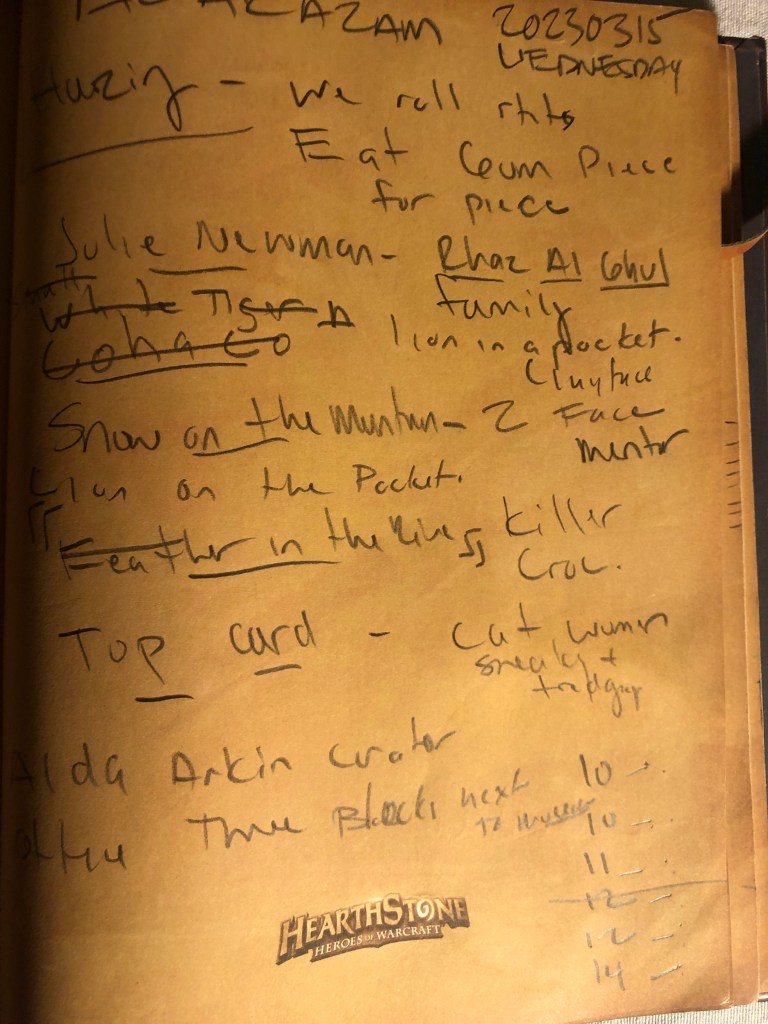 AZAM 20230315
WEDNESDAY
Haziq - We roll
Eat Gum Piece
for piece
Julie Newman - Rhaz Al Ghul
family
White Tiger
Lion in a pocket.
Clayface
Snow on the Muntun - 2 Face
mentor
Lion on the Pocket.
Feather in the Killer
Croc.
Top card - Cat womn
sneaky +
Alda Arkin curator
Three Blocks next
to
10 -
10 -
11 -
12 -
12 -
14 -
HEARTHSTONE
HEROES OF WARCRAFT